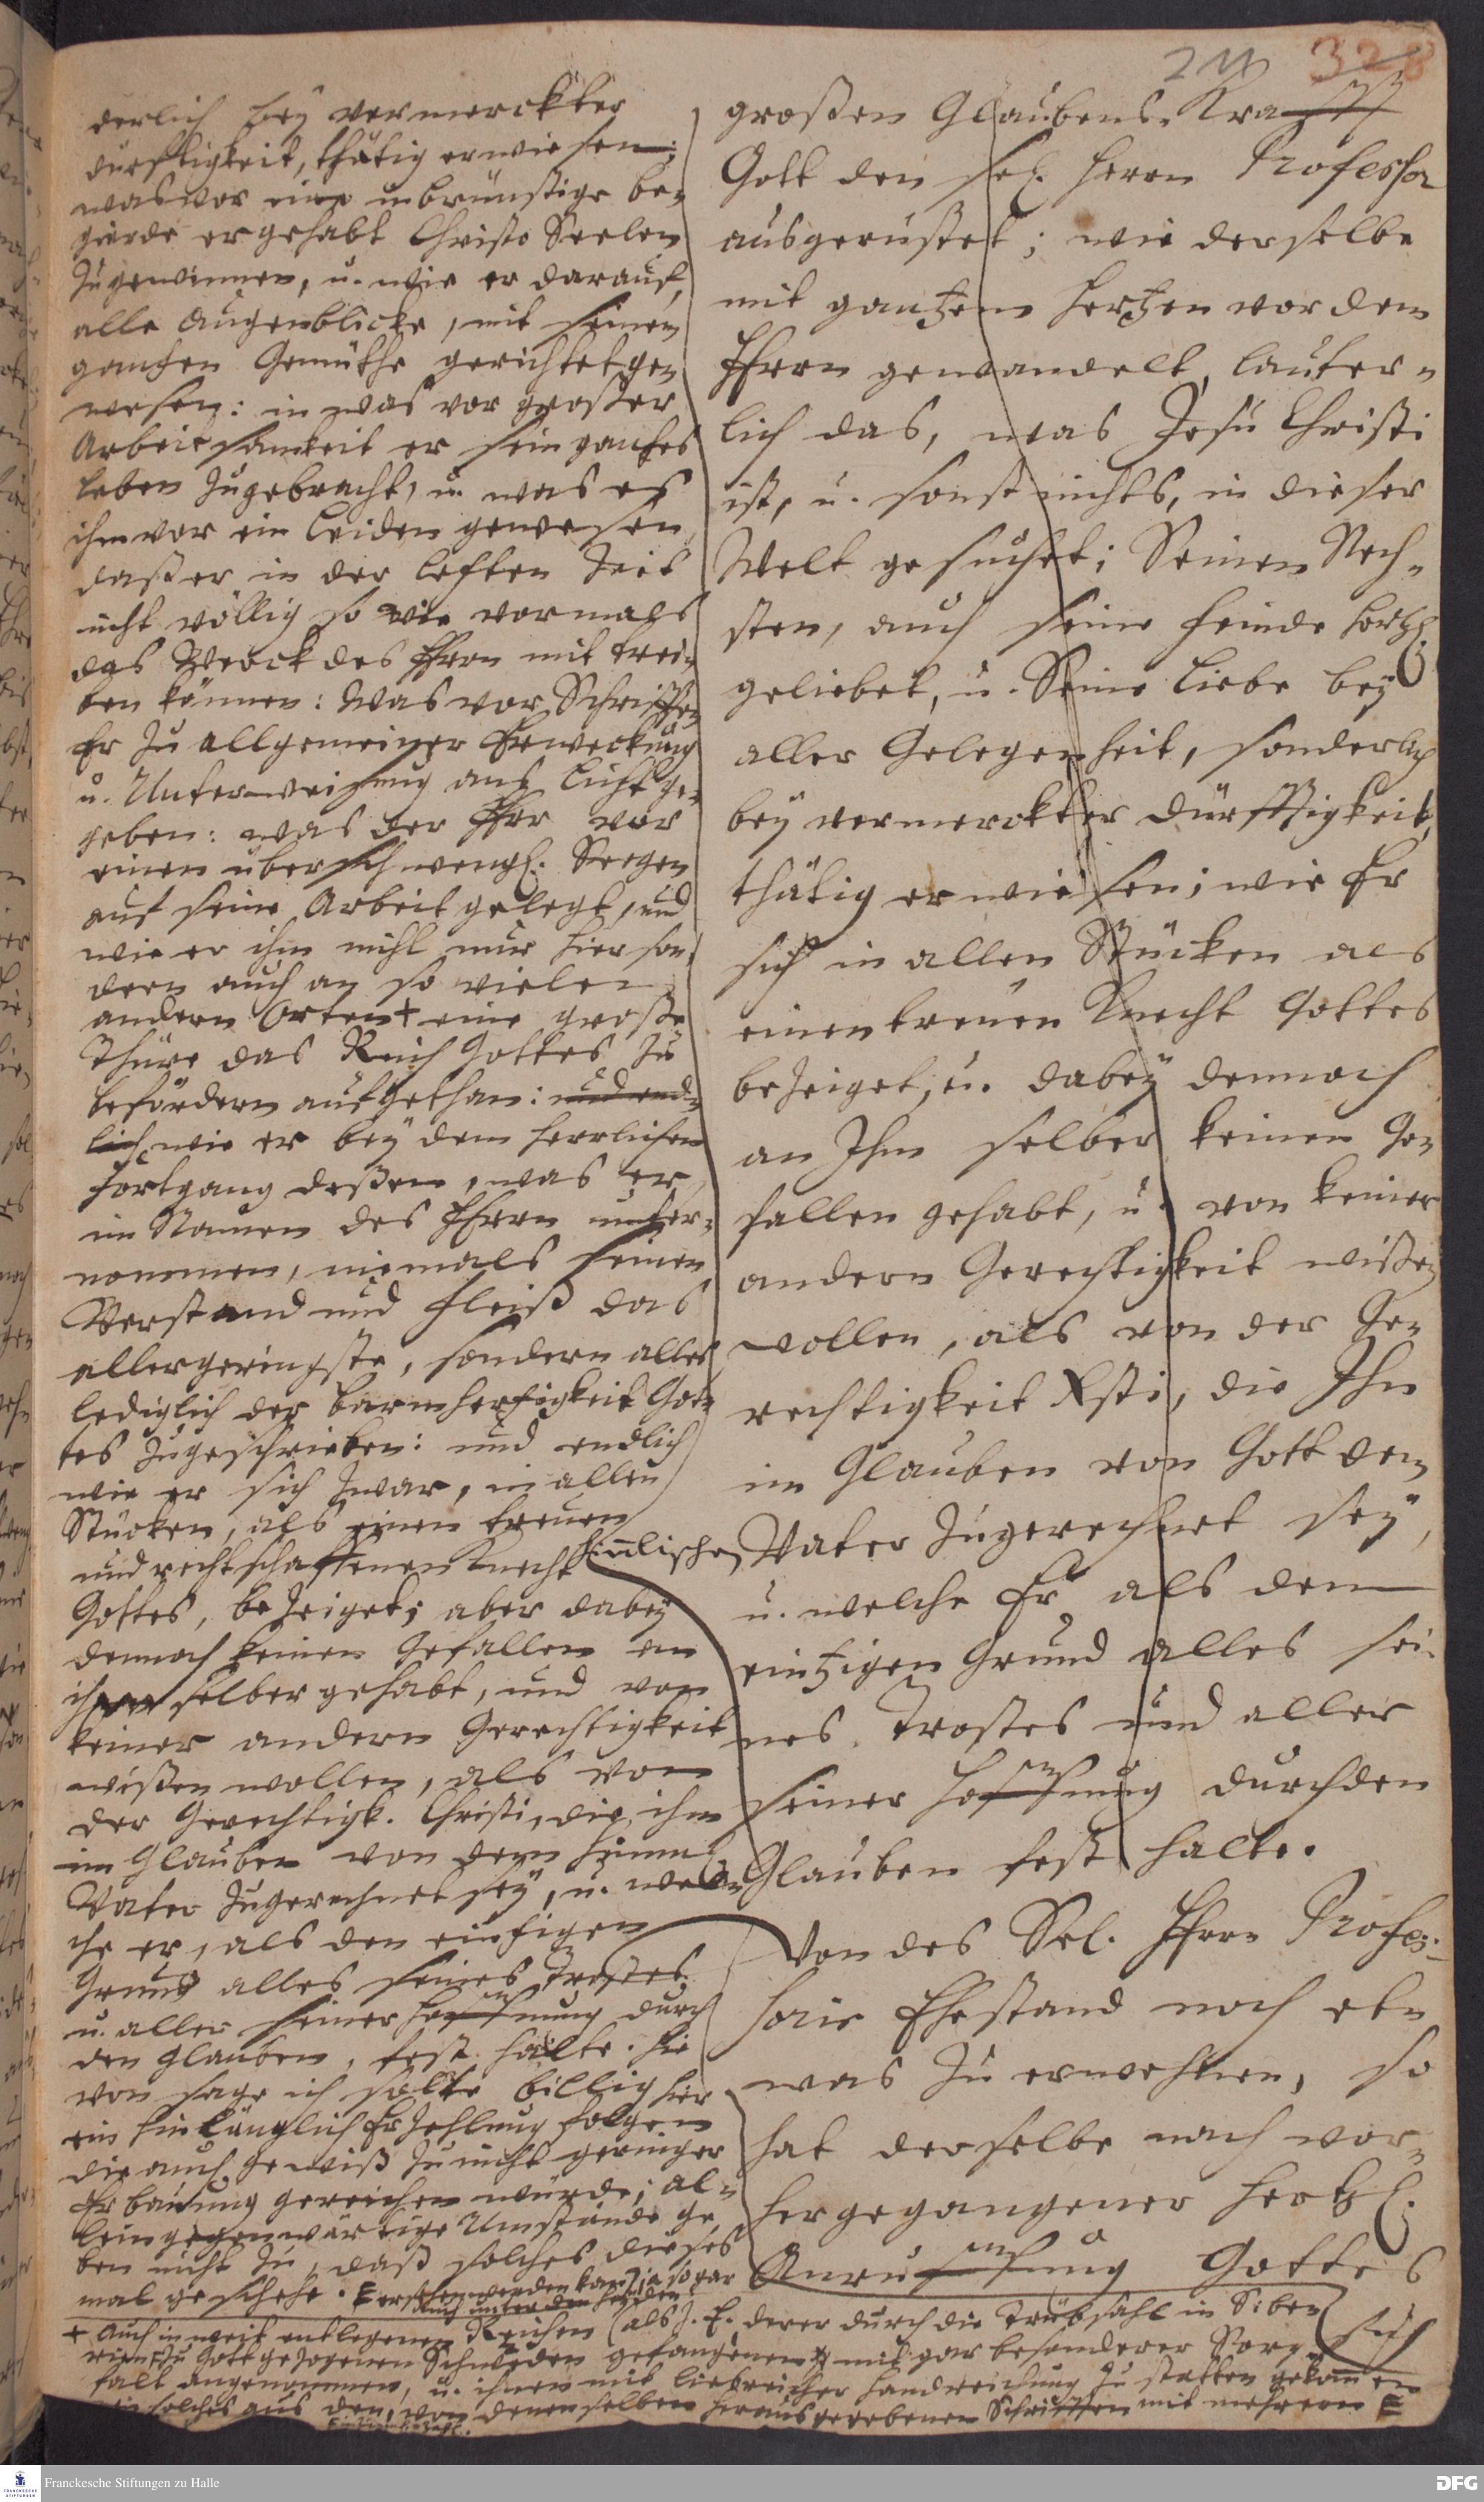 328
derlich bey vermerckter
dürfftigkeit, thätig erwiesen:
was vor eine inbrünstige be-
gierde er gehabt Christo Seelen
zu gewinnen, u. wie er darauf,
alle Augenblicke, mit seinem
gantzen Gemüthe gerichtet ge-
wesen: in was vor großer
Arbeitsamkeit er sein gantzes
Leben zugebracht, u. was es
ihm vor ein Leiden gewesen
daß er in der letzten Zeit
nicht völlig so wie vormals
das Werck des Herrn mit trei-
ben können: Was vor Schrifften
Er zu allgemeiner Erweckung
u. Unterweisung ans Licht ge-
geben: was der Herr vor
einen überschwengl. Seegen
auf seine Arbeit gelegt, und
wie er ihm nicht nur hier son-
dern auch an so vielen
andern Orten + eine große
Thüre das Reich Gottes zu
befördern aufgethan: und end-
lich wie er bey dem herrlichen
Fortgang deßen, was er
im Namen des Herrn unter-
nommen, niemals seinem
Verstand und Fleiß das
allergeringste, sondern alles
lediglich der Barmhertzigkeit Got-
tes zugeschrieben: und endlich
wie er sich zwar, in allen
Stücken, als einen treuen
und rechtschaffenen Knecht
Gottes, bezeiget; aber dabey
dennoch keinen Gefallen an
ihm selber gehabt, und von
keiner andern Gerechtigkeit
wißen wollen, als von
der Gerechtigk. Christi, die ihm
im Glauben von dem himml.
Vater zugerechnet sey, u. wel-
che er, als den eintzigen
Grund alles seines Trostes
u. aller seiner Hoffnung durch
den Glauben, fest halte. Hie
von sage ich solte billig hier
ein hinlänglich Erzehlung folgen
die auch gewiß zu nicht geringer
Erbauung gereichen würde; al-
lein gegenwärtige Umstände ge-
ben nicht zu, daß solches dieses
mal geschehe.
großen Glaubens-Krafft
Gott den sel. Herrn Professor
ausgerüstet; wie derselbe
mit gantzem Hertzen vor dem
Herrn gewandelt, lauter-
lich das, was Jesu Christi
ist, u. sonst nichts, in dieser
Welt gesuchet; Seinen Nech-
sten, auch seine Feinde hertzl.
geliebet, u. Seine Liebe bey
aller Gelegenheit, sonderlich
bey vermerckter Dürfftigkeit,
thätig erwiesen; wie Er
sich in allen Stücken als
einen treuen Knecht Gottes
bezeiget, u. dabey dennoch
an Ihm selber keinen Ge-
fallen gehabt, u. von keiner
andern Gerechtigkeit wißen
wollen, als von der Ge-
rechtigkeit Xsti, die Ihm
im Glauben von Gott dem
himlischen Vater zugerechnet sey,
u. welche Er als den
eintzigen Grund alles sei-
nes Trostes und aller
seiner Hoffnung durch den
Glauben fest halte.
Von des Sel. Herrn Profes-
soris Ehestand noch et-
was zu erwehnen, so
hat derselbe nach vor-
hergegangener hertzl.
Anruffung Gottes
sich
ersehen werden kan, ja so gar
auch unter den Heyden
+ Auch in weit entlegenen Reichen (als z. E. derer durch die Trübsahl in Sibe-
rien zu Gott gezogenen Schweden gefangenen mit gar besonderer Sorg-
falt angenommen, u. ihnen mit liebreicher Handreichung zu statten gekommen
solches aus den, von denenselben herausgegebenen Schrifften mit mehrern
Franckesche Stiftungen zu Halle
DFG